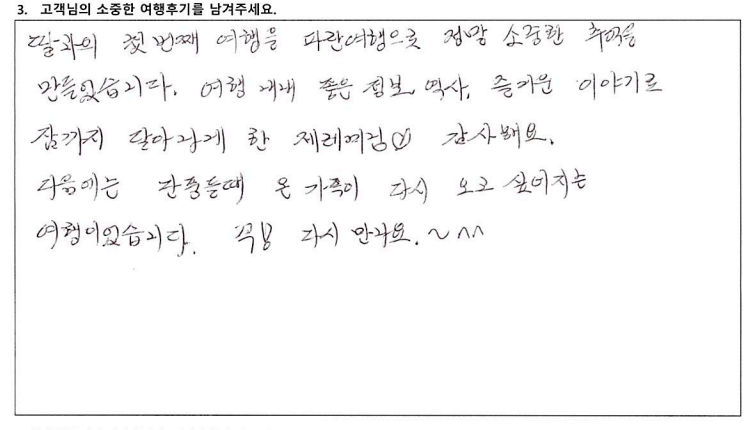 3. 고객님의 소중한 여행후기를 남겨주세요.
딸과의 첫번째 여행을 파란여행으로 정말 소중한 추억을
만들었습니다. 여행 내내 좋은 정보, 역사, 즐거운 이야기로
잠까지 달아나게 한 감사해요.
다음에는 단풍들때 온 가족이 다시 오고 싶어지는
여행이었습니다. 꼭 다시 만나요. ~ ^^